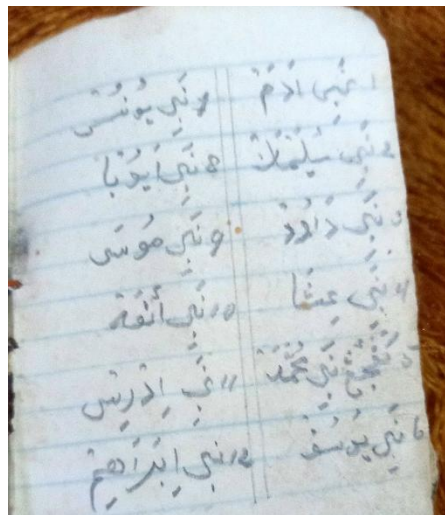 ١ نَبِى اٰدَمْ
نَبِى سُلَيْمَان
نَبِى دَاوُدْ
نَبِى عِيسَٰا
نَبِى مُحَمَّدْ
نَبِى يُوسُفْ
نَبِى يُونُسْ
نَبِى اَيُوبَا
٩ نَبِى مُوسَى
١٠ نَبِى
١١ نَبِى اِدْرِيسْ
نَبِى اِبْرَاهِيمْ